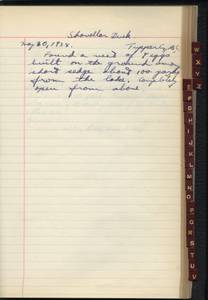 Shoveller Duck
May 20, 1938. Tipperty, B.C.
Found a nest of eggs
built on the ground among
short sedge about 100 yards
from the lake, completely
open from above
W
X
Y
Z
G
H
I
J
K
L
M
N
O
P
Q
R
S
T
U
V